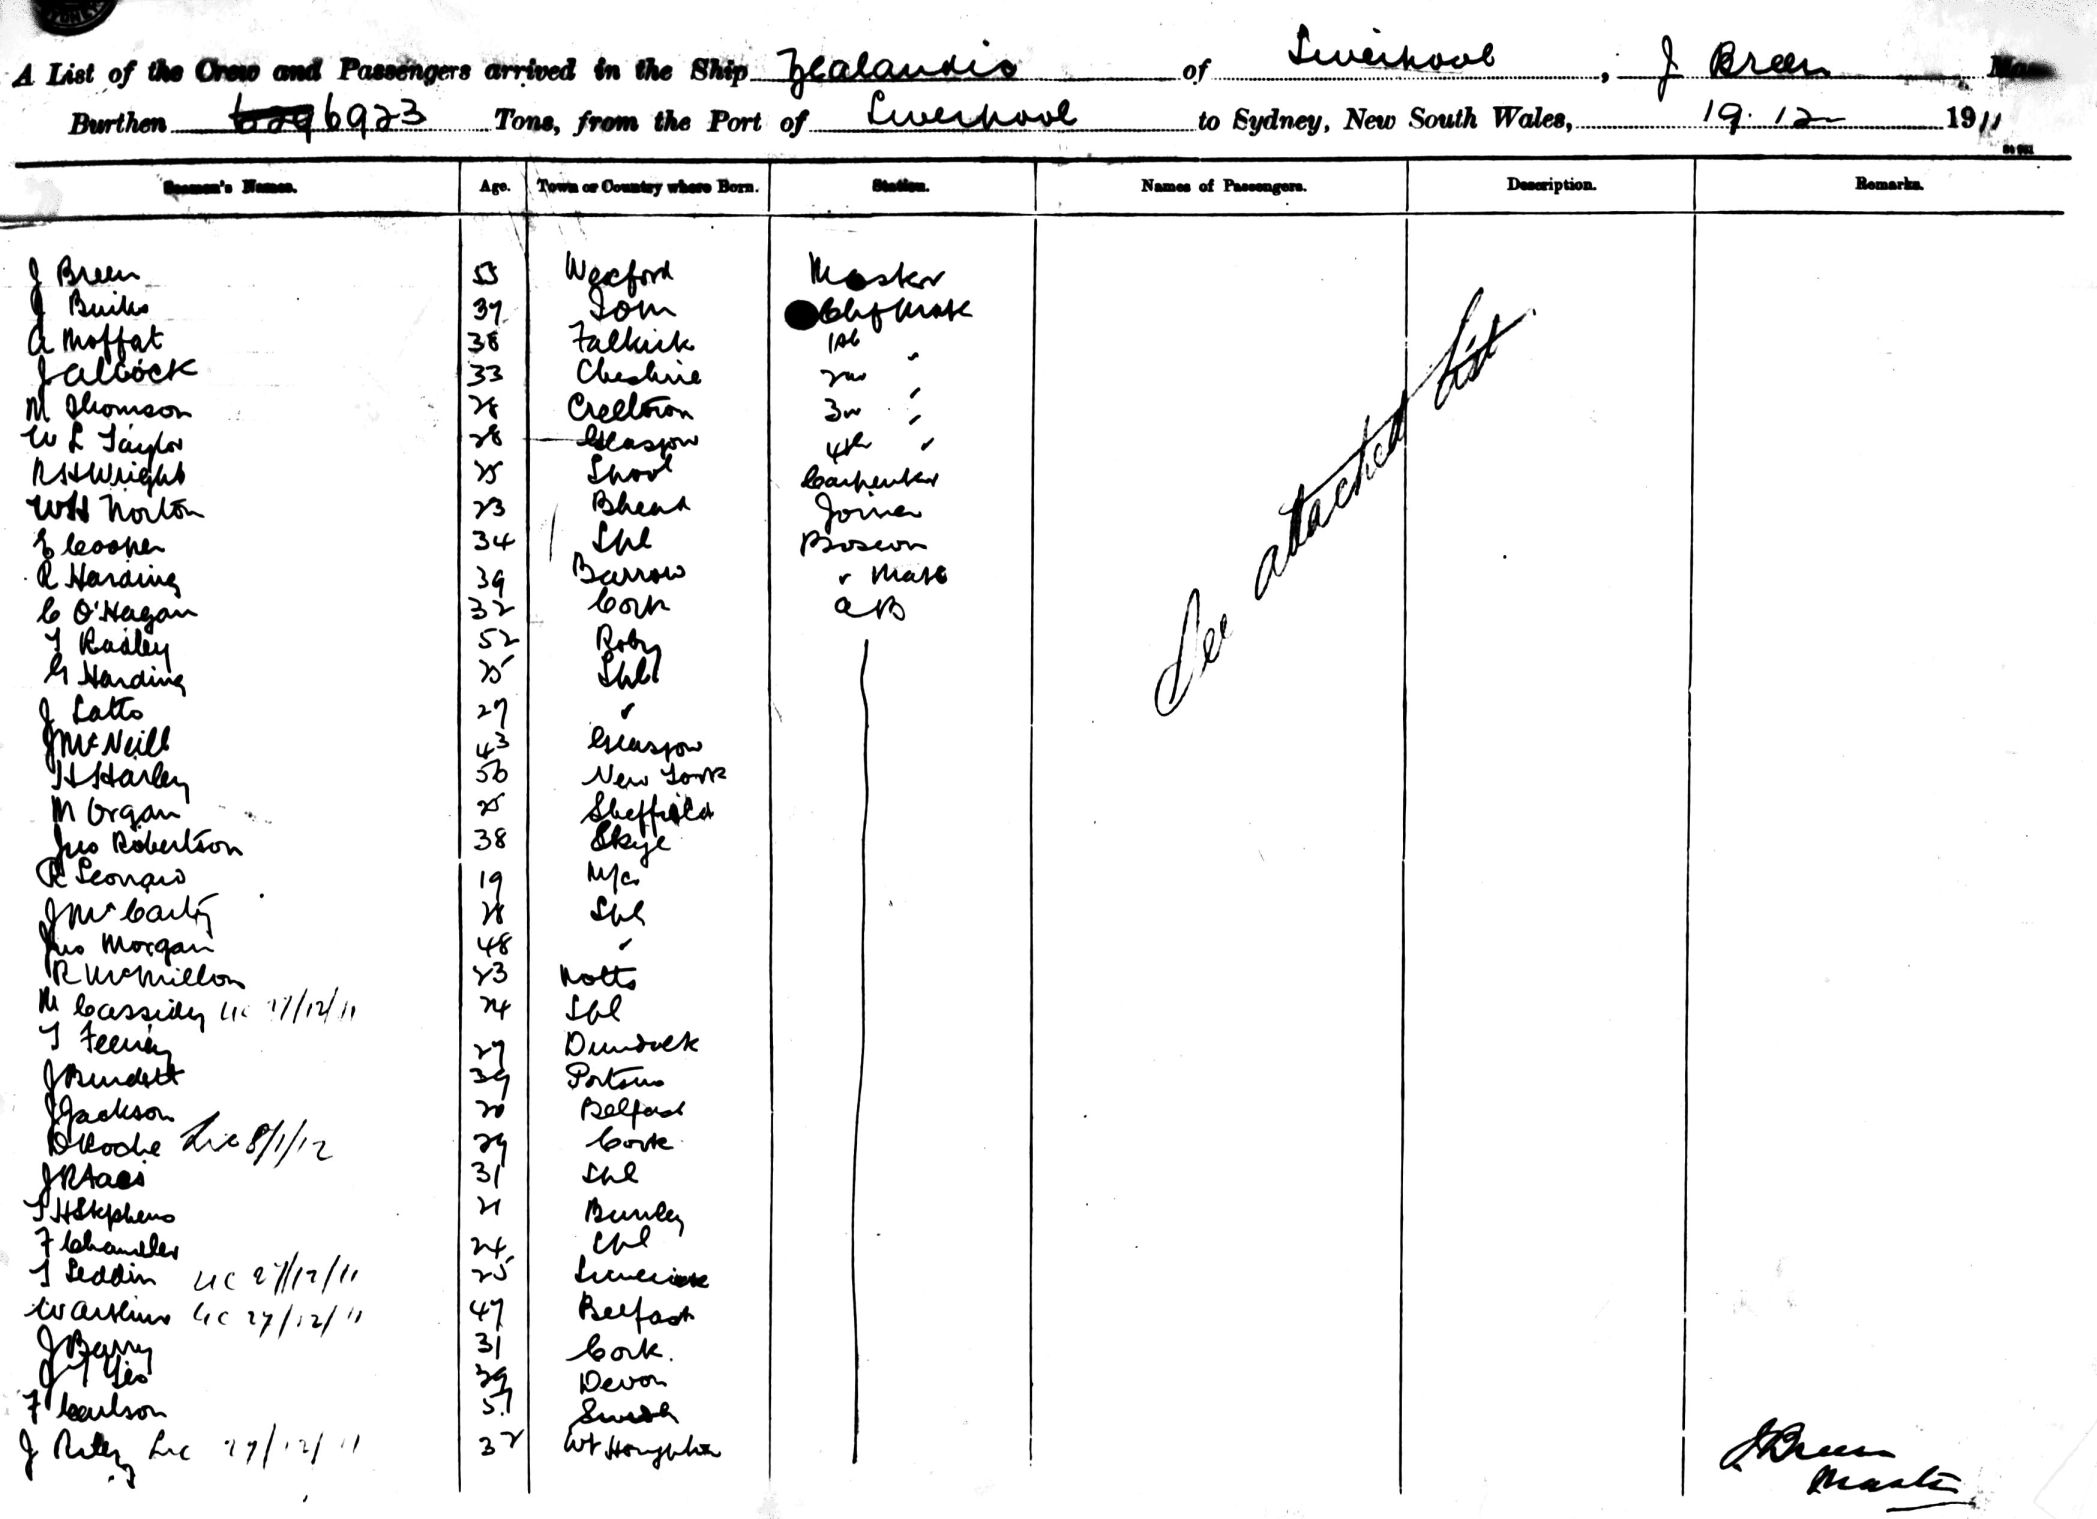 A List of the Crew and Passengers arrived in the Ship Zealandic of Liverpool, J Breen
Burthen 6923 Tons, from the Port of Liverpool to Sydney, New South Wales, 19.12 1911
Seamen's Names. Age. Town or Country where Born. Station. Names of Passengers. Description. Remarks.
J Breen 53 Wexford Master
37 Chf Mate
A Moffat 38 Falkirk 1st "
J Alcock 33 Cheshire 2nd "
M Thomson 28 Creetown 3rd "
W L Taylor 28 Glasgow 4th "
R H Wright 25 Lpool Carpenter
W H Norton 23 Bhead Joiner
E Cooper 34 Lpl Boseon
R Harding 39 Barrow " Mate
C O'Hagan 32 Cork AB
T Radley 52 Roby
G Harding 25 Lpl
J Latto 27 "
J McNeill 43 Glasgow
H Harley 56 New York
M Organ 25 Sheffield
Jno Robertson 38 Skye
R Leonard 19
J McCarty 28 Lpl
Jno Morgan 48 "
R McMillon 23 Notts
M Cassidy 27/12/11 24 Lpl
T Feeney 27 Dundalk
J Burdett 39
J Jackson 20 Belfast
D Roche Lic 8/1/12 29 Cork
J R 31 Lpl
T H Stephens 21
F Chandler 24 Lpl
T Seddin Lic 27/12/11 25 Limerick
W Lic 27/12/11 47 Belfast
J Barry 31 Cork.
J T Yeo 39 Devon
F Carlson 57
J Riley Lic 27/12/11 32
See attached List.
J Breen
Master